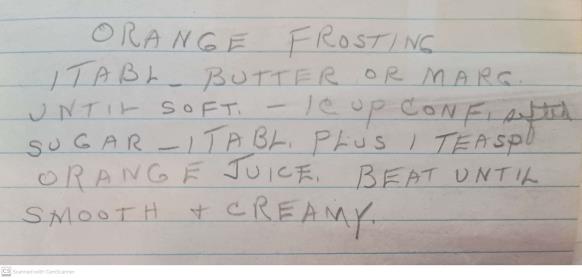 ORANGE FROSTING
1 TABL - BUTTER OR MARG.
UNTIL SOFT. - 1 CUP CONF, sifted
SUGAR - 1 TABL. PLUS 1 TEASP
ORANGE JUICE. BEAT UNTIL
SMOOTH + CREAMY.
CS Scanned with CamScanner